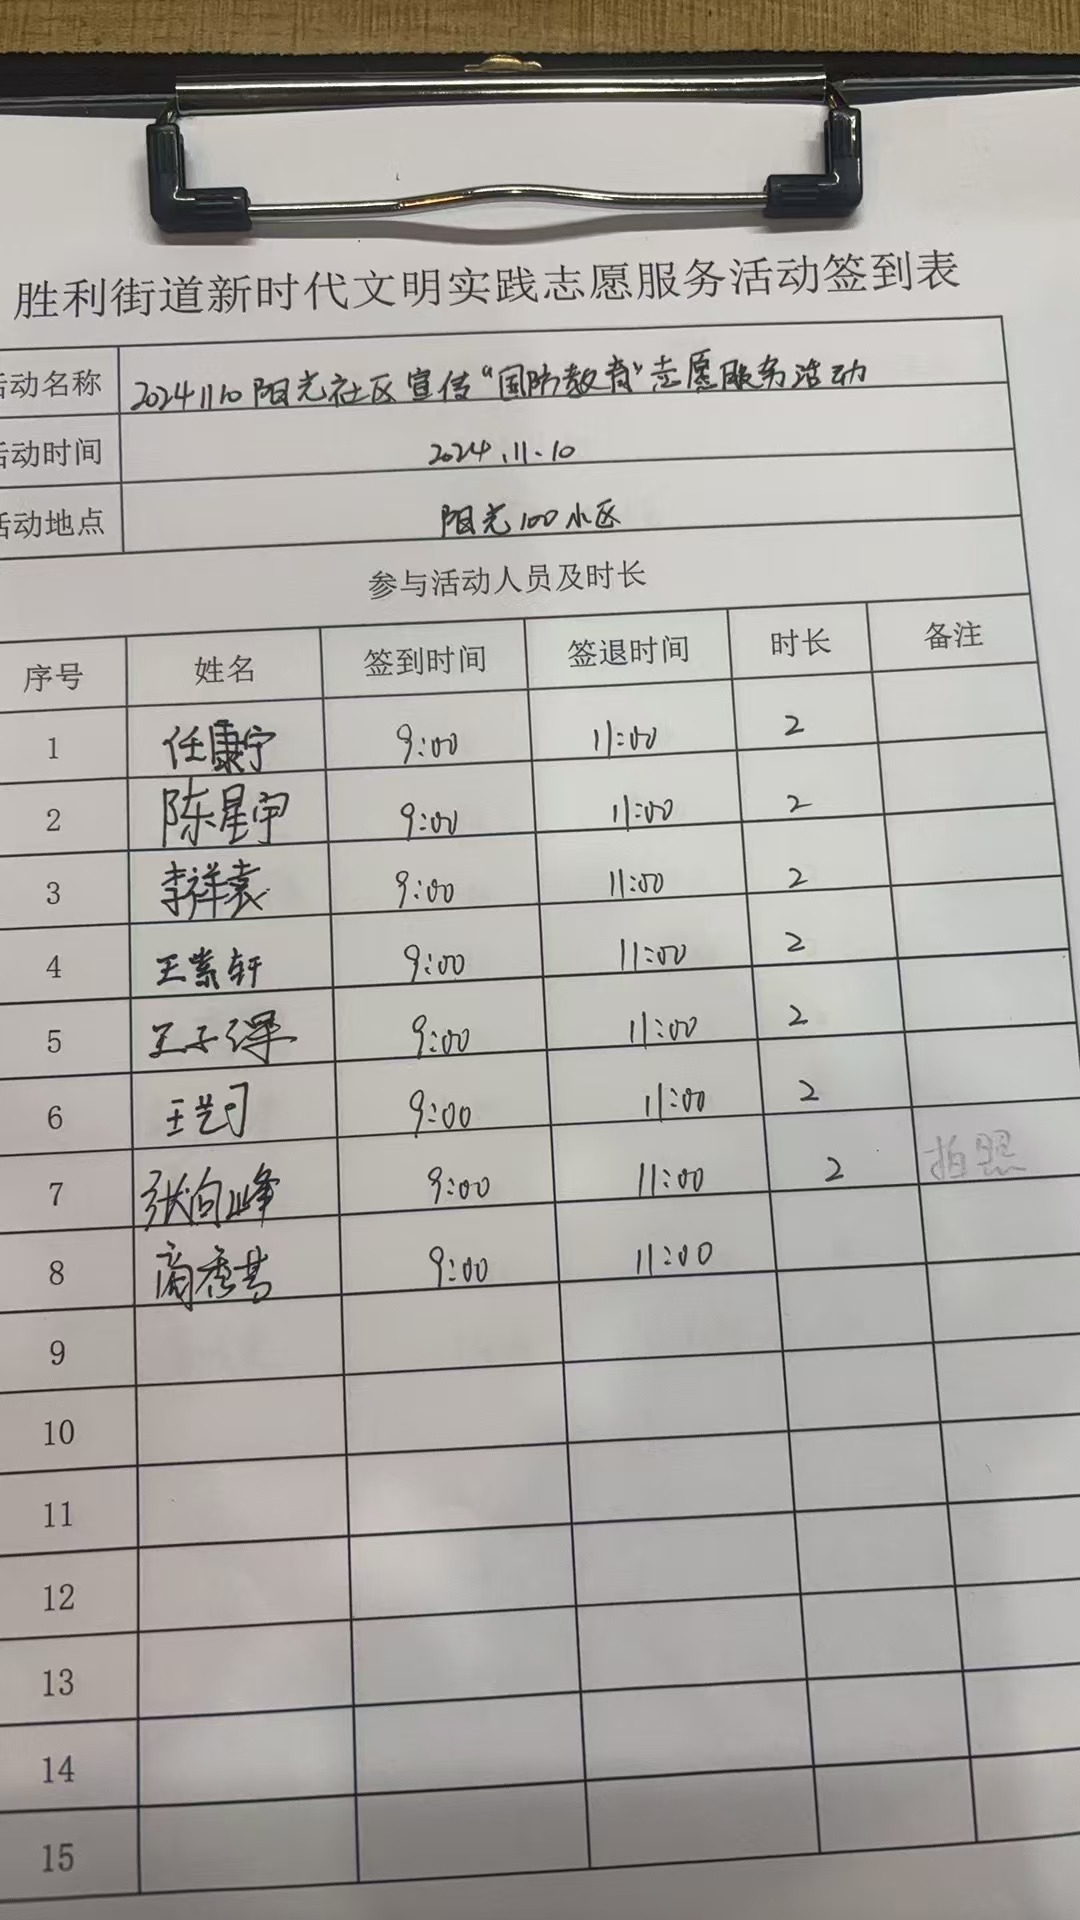 胜利街道新时代文明实践志愿服务活动签到表
活动名称 20241110阳光社区宣传“国防教育”志愿服务活动
活动时间 2024.11.10
活动地点 阳光100小区
参与活动人员及时长
序号 姓名 签到时间 签退时间 时长 备注
1 任康宁 9:00 11:00 2
2 陈星宇 9:00 11:00 2
3 李祥袁 9:00 11:00 2
4 王紫轩 9:00 11:00 2
5 王子泽 9:00 11:00 2
6 王艺 9:00 11:00 2
7 张向峰 9:00 11:00 2 拍照
8 商秀 9:00 11:00
9
10
11
12
13
14
15